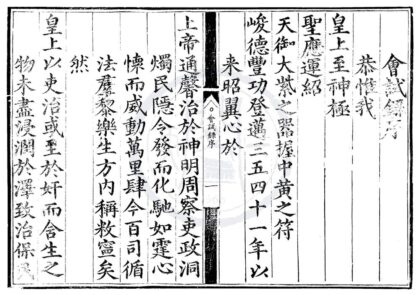 會試錄序
恭惟我
皇上至神極
聖應運紹
天御大紫之器握中黃之符
峻德豐功登邁三五四十一年以
来昭翼心於
會試錄序 一
上帝通馨治於神明周察吏政洞
燭民隱令發而化馳如霆心
悚而威動萬里肆今百司循
法羣黎樂生方内稱敉寧矣
然
皇上以吏治或至於奸而含生之
物未盡浸潤於澤致治保